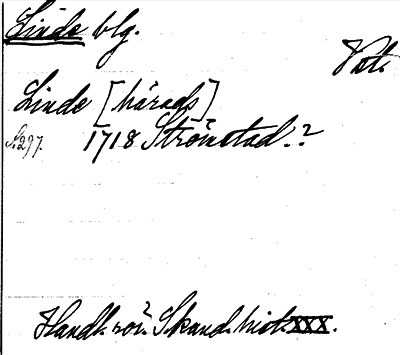 Linde blg.
Vstl.
Linde [härads]
S. 297. 1718 Strömstad.?
Handl. rör. Skand. hist. XXX.